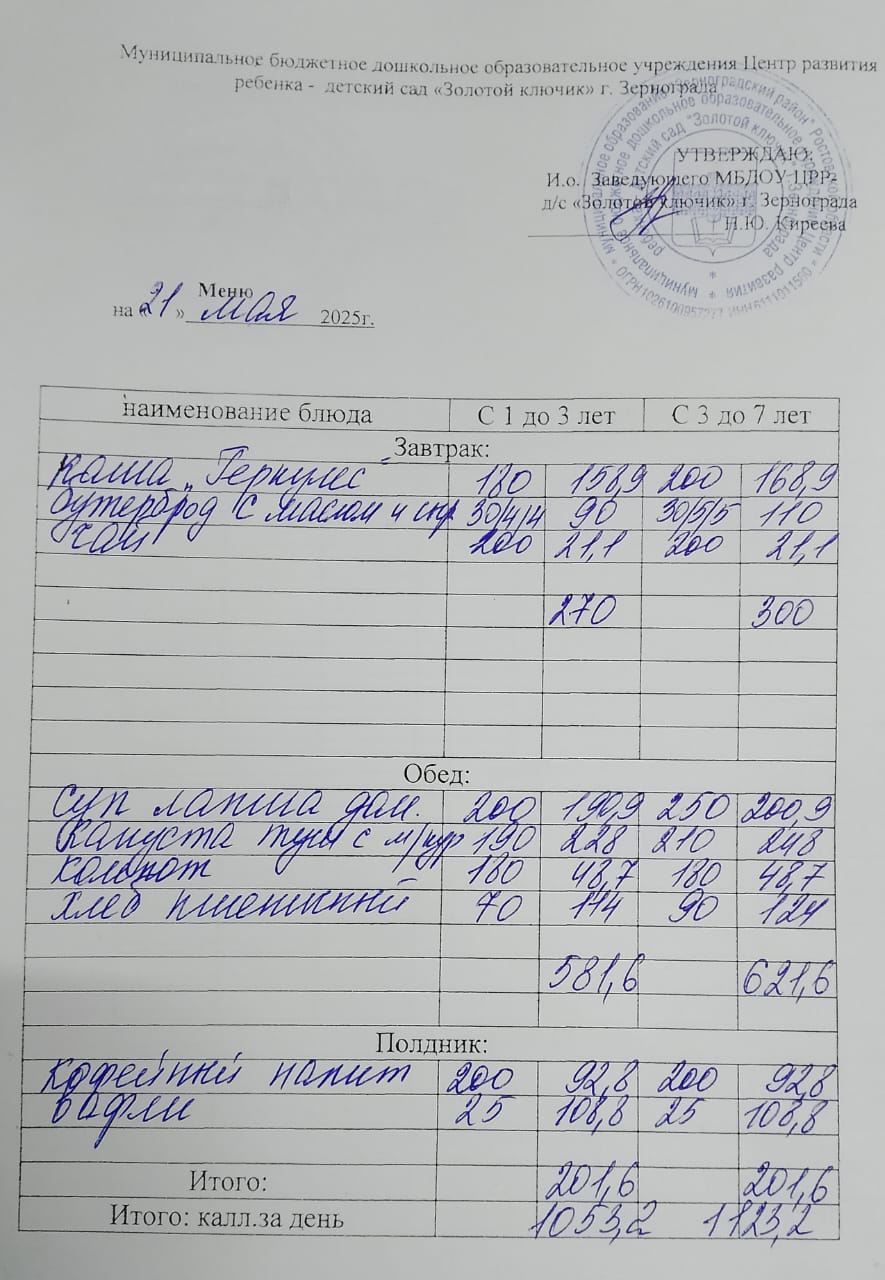 Муниципальное бюджетное дошкольное образовательное учреждения Центр развития
ребенка - детский сад «Золотой ключик» г. Зернограда
УТВЕРЖДАЮ:
И.о. Заведующего МБДОУ ЦРР-
д/с «Золотой ключик» г. Зернограда
Н.Ю. Киреева
Меню
на «21» мая 2025г.
наименование блюда С 1 до 3 лет С 3 до 7 лет
Завтрак:
Каша „Геркулес" 180 158,9 200 168,9
бутерброд с маслом и сыр 30/4/4 90 30/5/5 110
чай 200 21,1 200 21,1
270 300
Обед:
Суп лапша дом. 200 190,9 250 200,9
Капуста туш с м/кур 190 228 210 248
Компот 180 48,7 180 48,7
хлеб пшеничный 70 114 90 124
581,6 621,6
Полдник:
Кофейный напит 200 92,8 200 92,8
вафли 25 108,8 25 108,8
Итого: 201,6 201,6
Итого: калл.за день 1053,2 1123,2